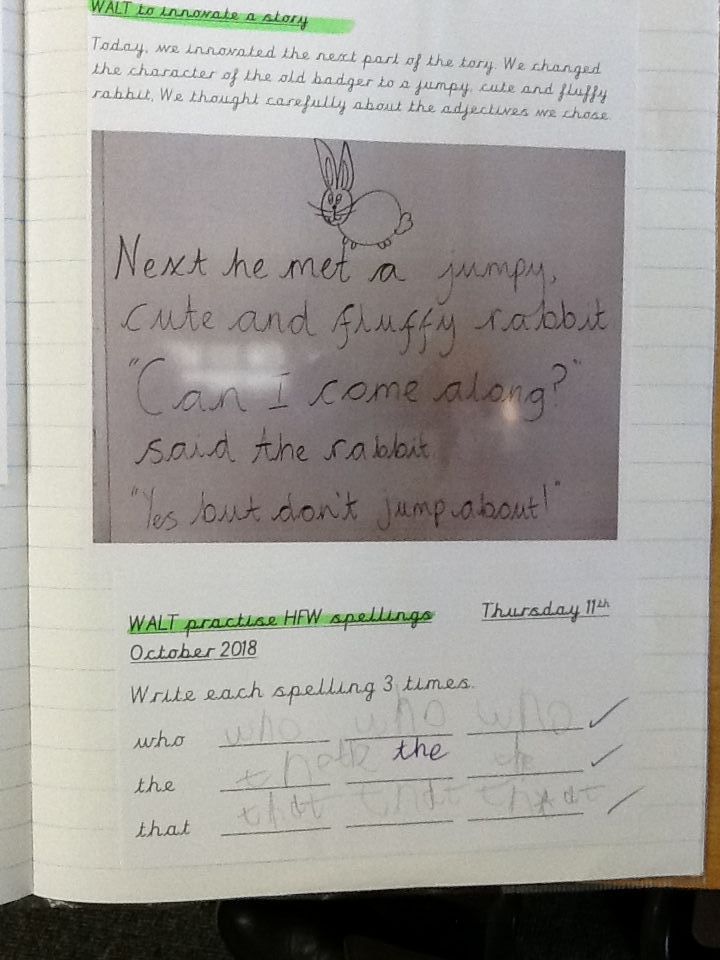 WALT to innovate a story
Today, we innovated the next part of the tory. We changed
the character of the old badger to a jumpy, cute and fluffy
rabbit, We thought carefully about the adjectives we chose.
Next he met a jumpy,
cute and fluffy rabbit
"Can I come along?"
said the rabbit.
"Yes but don't jump about!"
WALT practise HFW spellings Thursday 11th
October 2018
Write each spelling 3 times.
who who who who
the the
that that that that